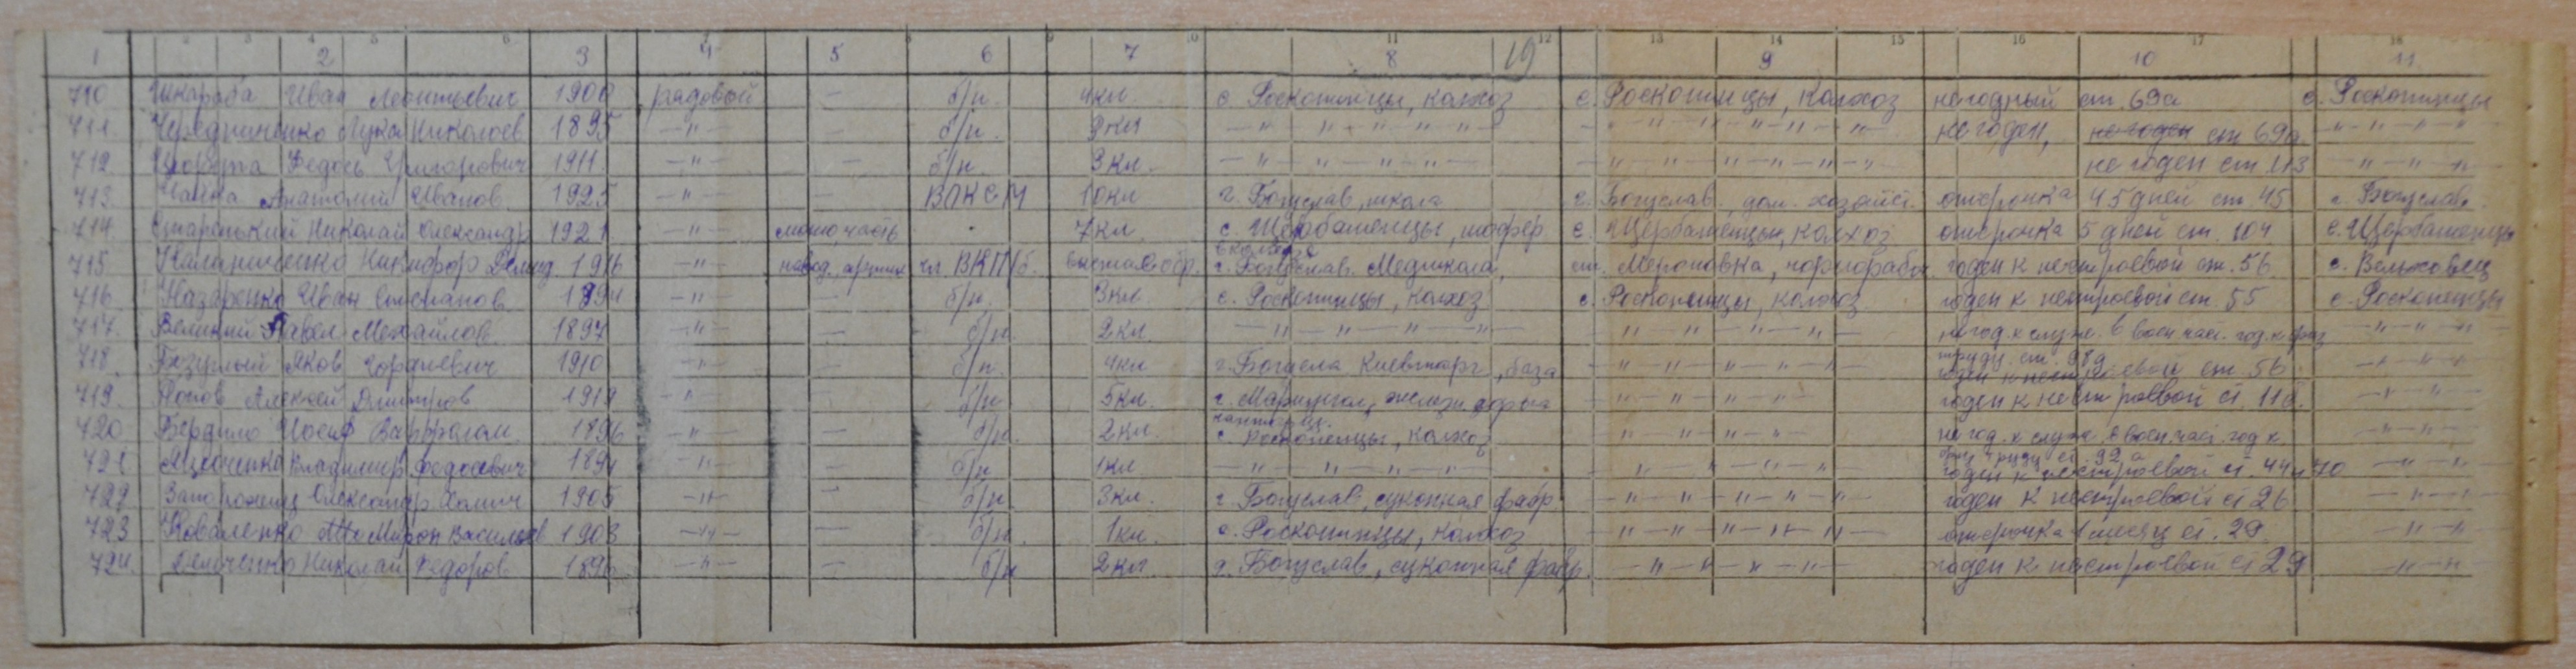 2 3 4 5 6 7 8 9 10 11 12 13 14 15 16 17 18
1 2 3 4 5 6 7 8 19 9 10 11
710 Шкараба Иван Леонтьевич 1900 рядовой — б/п. 4 кл. с. Роскопинцы, колхоз с. Роскопинцы, колхоз негодный ст. 69а с. Роскопинцы
711. Чередниченко Лука Николаев 1895 —"— б/п. 2 кл —"—"—"—"—"— —"—"—"—"—"— не годен, ст 69а —"—"—"—
712. Федось Григорович 1911 —"— — б/п. 3 кл. —"—"—"—"— —"—"—"—"—"— не годен ст. 113 —"—"—"—
713. Чайка Анатолий Иванов. 1925 —"— — ВЛКСМ 10 кл г. Богуслав, школа г. Богуслав, дом. хозяйст. отсрочка 45 дней ст 45 г. Богуслав.
714. Старенький Николай Олександр 1921 —"— часть 7 кл. с. Щербашенцы, шофер с. Щербашенцы, колхоз отсрочка 5 дней ст. 104 с. Щербашенцы
в колхозе
715. Никифор 1916 чл. ВКП/б. обр. г. Богуслав. Медшкола, ст. Мероновка, годен к нестроевой ст. 56 с.
716. Назаренко Иван Степанов. 1894 —"— — б/п. 3 кл. с. Роскопинцы, колхоз с. Роскопинцы, колхоз годен к нестроевой ст. 55 с. Роскопенцы
717. Великий Павел Михайлов. 1897 —"— — б/п 2 кл —"—"—"—"— —"—"—"—"— не год. к служ. в воен. част. год. к физ —"—"—"—
труду ст. 98д
718. Безуглый Яков Гордиевич 1910 —"— — б/п. 4 кл г. Богусла Киевторг, база —"—"—"—"— годен к нестроевой ст. 56. —"—"—
719. Попов Алексей Дмитров 1914 —"— — б/п 5 кл. г. Мариуполь, железн. дорога —"—"—"—"— годен к нестроевой ст. 11б. —"—"—
720. Бердило Иосиф 1896 —"— — б/п. 2 кл. с. Роскопенцы, колхоз —"—"—"—"— не год. к служ. в воен. част. год к —"—"—
физ труду ст. 92а
721 Яценко Владимир Федосевич 1894 —"— — б/п 1 кл —"—"—"—"— —"—"—"—"— годен к нестроевой ст. 44 и 70 —"—"—
722. Запорожец Олександр 1905 —"— — б/п. 3 кл. г. Богуслав, суконная фабр —"—"—"—"—"— годен к нестроевой ст 26 —"—"—
723 Коваленко Мирон Васильев 1903 —"— — б/п. 1 кл. с. Роскопинцы, колхоз —"—"—"—"—"— отсрочка 1 месяц ст. 29 —"—"—
724. Николай Федоров 1896 —"— — б/п 2 кл г. Богуслав, суконная фабр. —"—"—"—"— годен к нестроевой ст 29 —"—"—